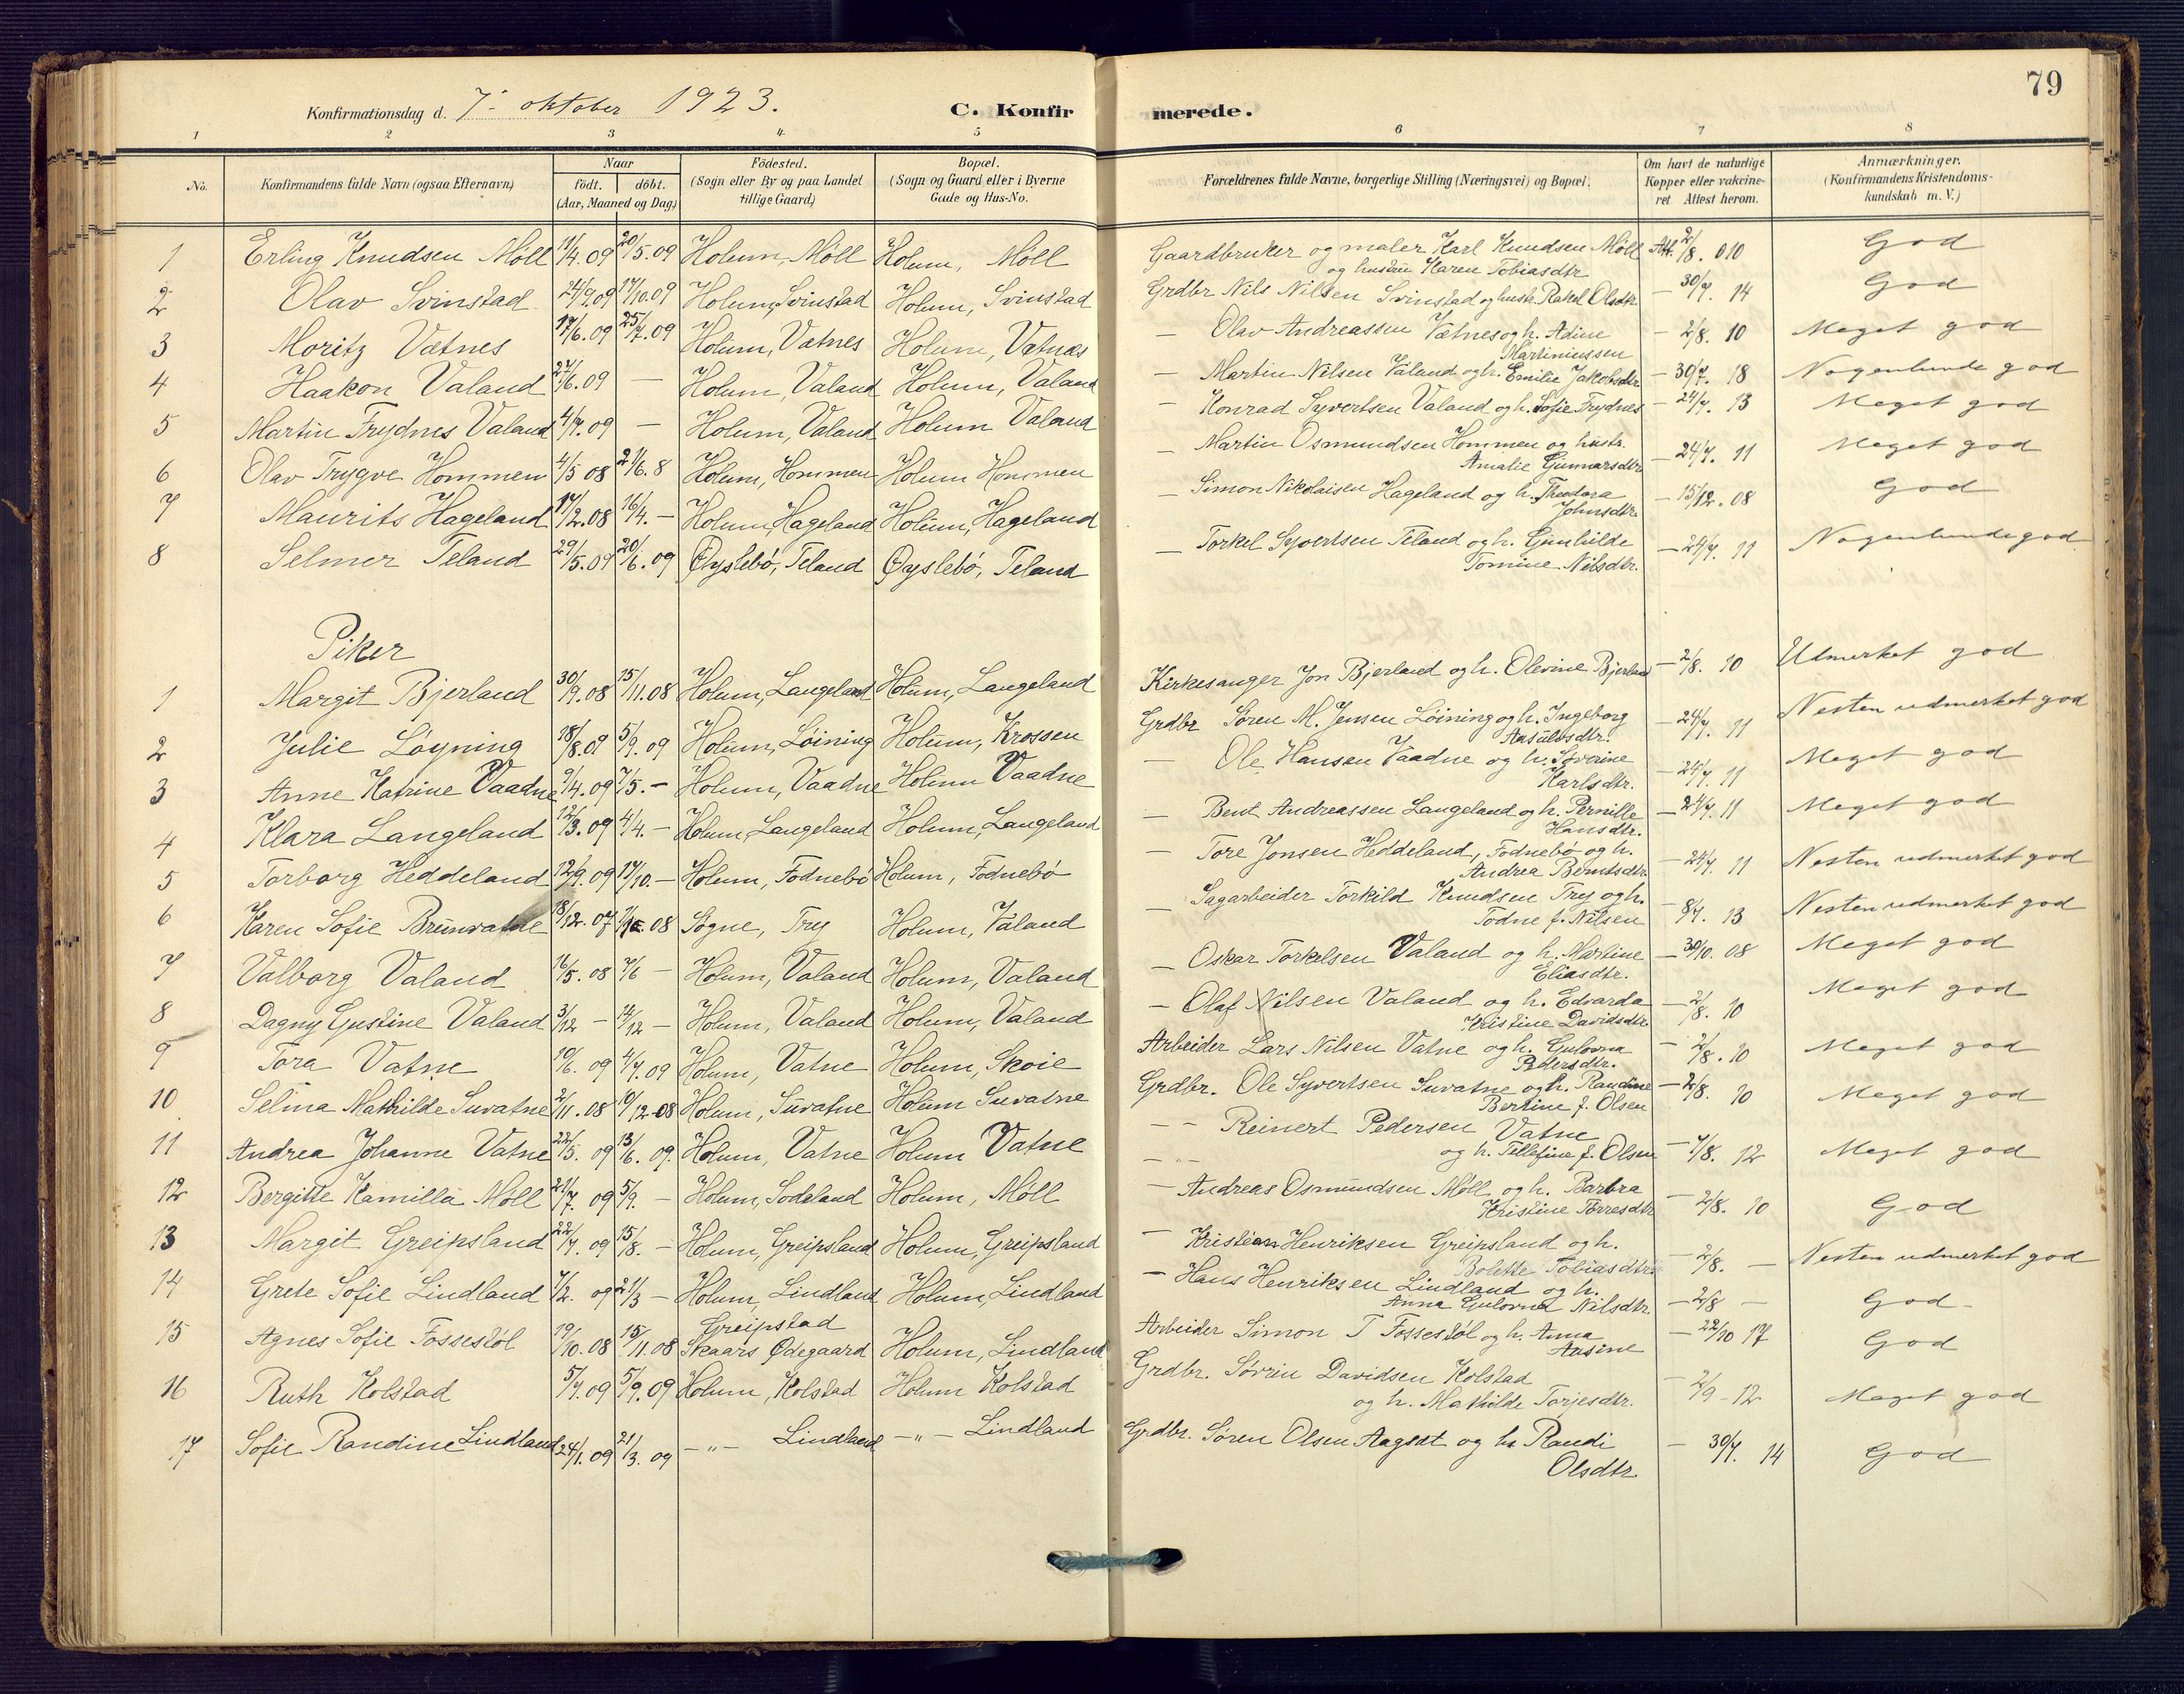 79
Konfirmationsdag d. 7de oktober 1923. C. Konfirmerede.
1 2 3 4 5 6 7 8
No. Konfirmandens fulde Navn (ogsaa Efternavn) Naar födt. döbt. (Aar, Maaned og Dag) Födested. (Sogn eller By og paa Landet tillige Gaard) Bopæl. (Sogn og Gaard eller i Byerne Gade og Hus-No. Forældrenes fulde Navne, borgerlige Stilling (Næringsvei) og Bopæl. Om havt de naturlige Kopper eller vakcineret Attest herom. Anmærkninger. (Konfirmandens Kristendomskundskab m. V.)
1 Erling Knudsen Möll 11/4.09 20/5.09 Holum, Möll Holum, Möll Gaardbruker og maler Karl Knudsen Möll og hustru Karen Tobiasdtr Att. 2/8. 010 God
2 Olav Svinstad 24/9.09 17/10.09 Holum, Svinstad Holum, Svinstad Grdbr Nils Nilsen Svinstad og hustr. Rakel Olsdtr. — 30/7. 14 God
3 Moritz Vatnes 17/6.09 25/7.09 Holum, Vatnes Holum, Vatnes — Olav Andreassen Vatnes og h. Adine Martiniussen — 2/8. 10 Meget god
4 Haakon Valand 27/6.09 — Holum, Valand Holum, Valand — Martin Nilsen Valand og h. Emilie Jakobsdtr — 30/7. 18 Nogenlunde god
5 Martin Frydnes Valand 4/7.09 — Holum, Valand Holum Valand — Konrad Syvertsen Valand og h. Sofie Frydnes — 24/7. 13 Meget god
6 Olav Trygve Hommen 4/5 08 21/6.8 Holum, Hommen Holum Hommen — Martin Osmundsen Hommen og hustr. Amalie Gunnarsdtr — 24/7. 11 Meget god
7 Maurits Hageland 17/2.08 16/4.— Holum, Hageland Holum, Hageland — Simon Nikolaisen Hageland og h. Theodora Johnsdtr. — 15/12.08 God
8 Selmer Teland 29/5.09 20/6.09 Øyslebö, Teland Øyslebö, Teland — Torkel Syvertsen Teland og h. Gunhilde Tomine Nilsdtr. — 24/7. 11 Nogenlunde god
Piker
1 Margit Bjerland 30/9.08 15/11.08 Holum, Langeland Holum, Langeland Kirkesanger Jon Bjerland og h. Olevine Bjerland — 2/8. 10 Utmerket god
2 Julie Löyning 18/8.09 5/9. 09 Holum, Löining Holum, Krossen Grdbr Sören M. Jensen Löining og h. Ingeborg Aasulvsdtr. — 24/7. 11 Nesten udmerket god
3 Anne Katrine Vaadne 9/4.09 7/5.— Holum, Vaadne Holum Vaadne — Ole Hansen Vaadne og h. Severine Karlsdtr. — 24/7. 11 Meget god
4 Klara Langeland 12/3.09 4/4.— Holum, Langeland Holum, Langeland — Bent Andreassen Langeland og h. Pernille Hansdtr. — 24/7. 11 Meget god
5 Torborg Heddeland 12/9.09 17/10.— Holum, Fodnebö Holum, Fodnebö — Tore Jonsen Heddeland, Fodnebö og h. Andrea Berntsdtr — 24/7. 11 Nesten udmerket god
6 Karen Sofie Brunvatne 18/12.07 08 Sogne, Try Holum, Valand — Sagarbeider Torkild Knudsen Try og h. Todne f. Nilsen — 8/7. 13 Nesten udmerket god
7 Valborg Valand 16/5.08 7/6 — Holum, Valand Holum, Valand — Oskar Torkelsen Valand og h. Martine Eliasdtr. — 30/10. 08 Meget god
8 Dagny Gustine Valand 3/12 — 14/12 — Holum, Valand Holum, Valand — Olaf Nilsen Valand og h. Edvarda Kristine Davidsdtr — 2/8. 10 Meget god
9 Tora Vatne 10/6. 09 4/7.09 Holum, Vatne Holum, Skoie Arbeider Lars Nilsen Vatne og h. Gulovna Pedersdtr. — 2/8. 10 Meget god
10 Selma Mathilde Suvatne 2/11.08 10/12.08 Holum, Suvatne Holum Suvatne Grdbr. Ole Syvertsen Suvatne og h. Randine Bertine f. Olsen — 2/8. 10 Meget god
11 Andrea Johanne Vatne 22/5. 09 13/6. 09. Holum, Vatne Holum Vatne — — Reinert Pedersen Vatne og h. Tellefine f. Olsen — 7/8. 12 Meget god
12 Bergitte Kamilla Möll 21/7. 09 5/9. — Holum, Sodeland Holum, Möll — Andreas Osmundsen Möll og h. Barbra Kristine Torresdtr — 2/8. 10 God
13 Margit Greipsland 22/7. 09 15/8. — Holum, Greipsland Holum, Greipsland — Kristian Henriksen Greipsland og h. Bolette Tobiasdtr. — 2/8. — Nesten udmerket god
14 Grete Sofie Lindland 7/2. 09 21/3 — Holum, Lindland Holum, Lindland — Hans Henriksen Lindland og h. Anna Gulovna Nilsdtr. — 2/8 — God
15 Agnes Sofie Fossestöl 19/10.08 15/11.08 Greipstad Skaars Ødegaard Holum, Lindland Arbeider Simon T Fossestöl og h. Anna Aasine — 22/10 17 God
16 Ruth Kolstad 5/7.09 5/9.09 Holum, Kolstad Holum Kolstad Grdbr. Sövrin Davidsen Kolstad og h. Mathilde Torjesdtr. — 2/9 — 12 Meget god
17 Sofie Randine Lindland 24/1.09 21/3. 09 — „ — Lindland — „ — Lindland Grdbr. Sören Olsen Aagset og h. Randi Olsdtr. — 30/7. 14 God